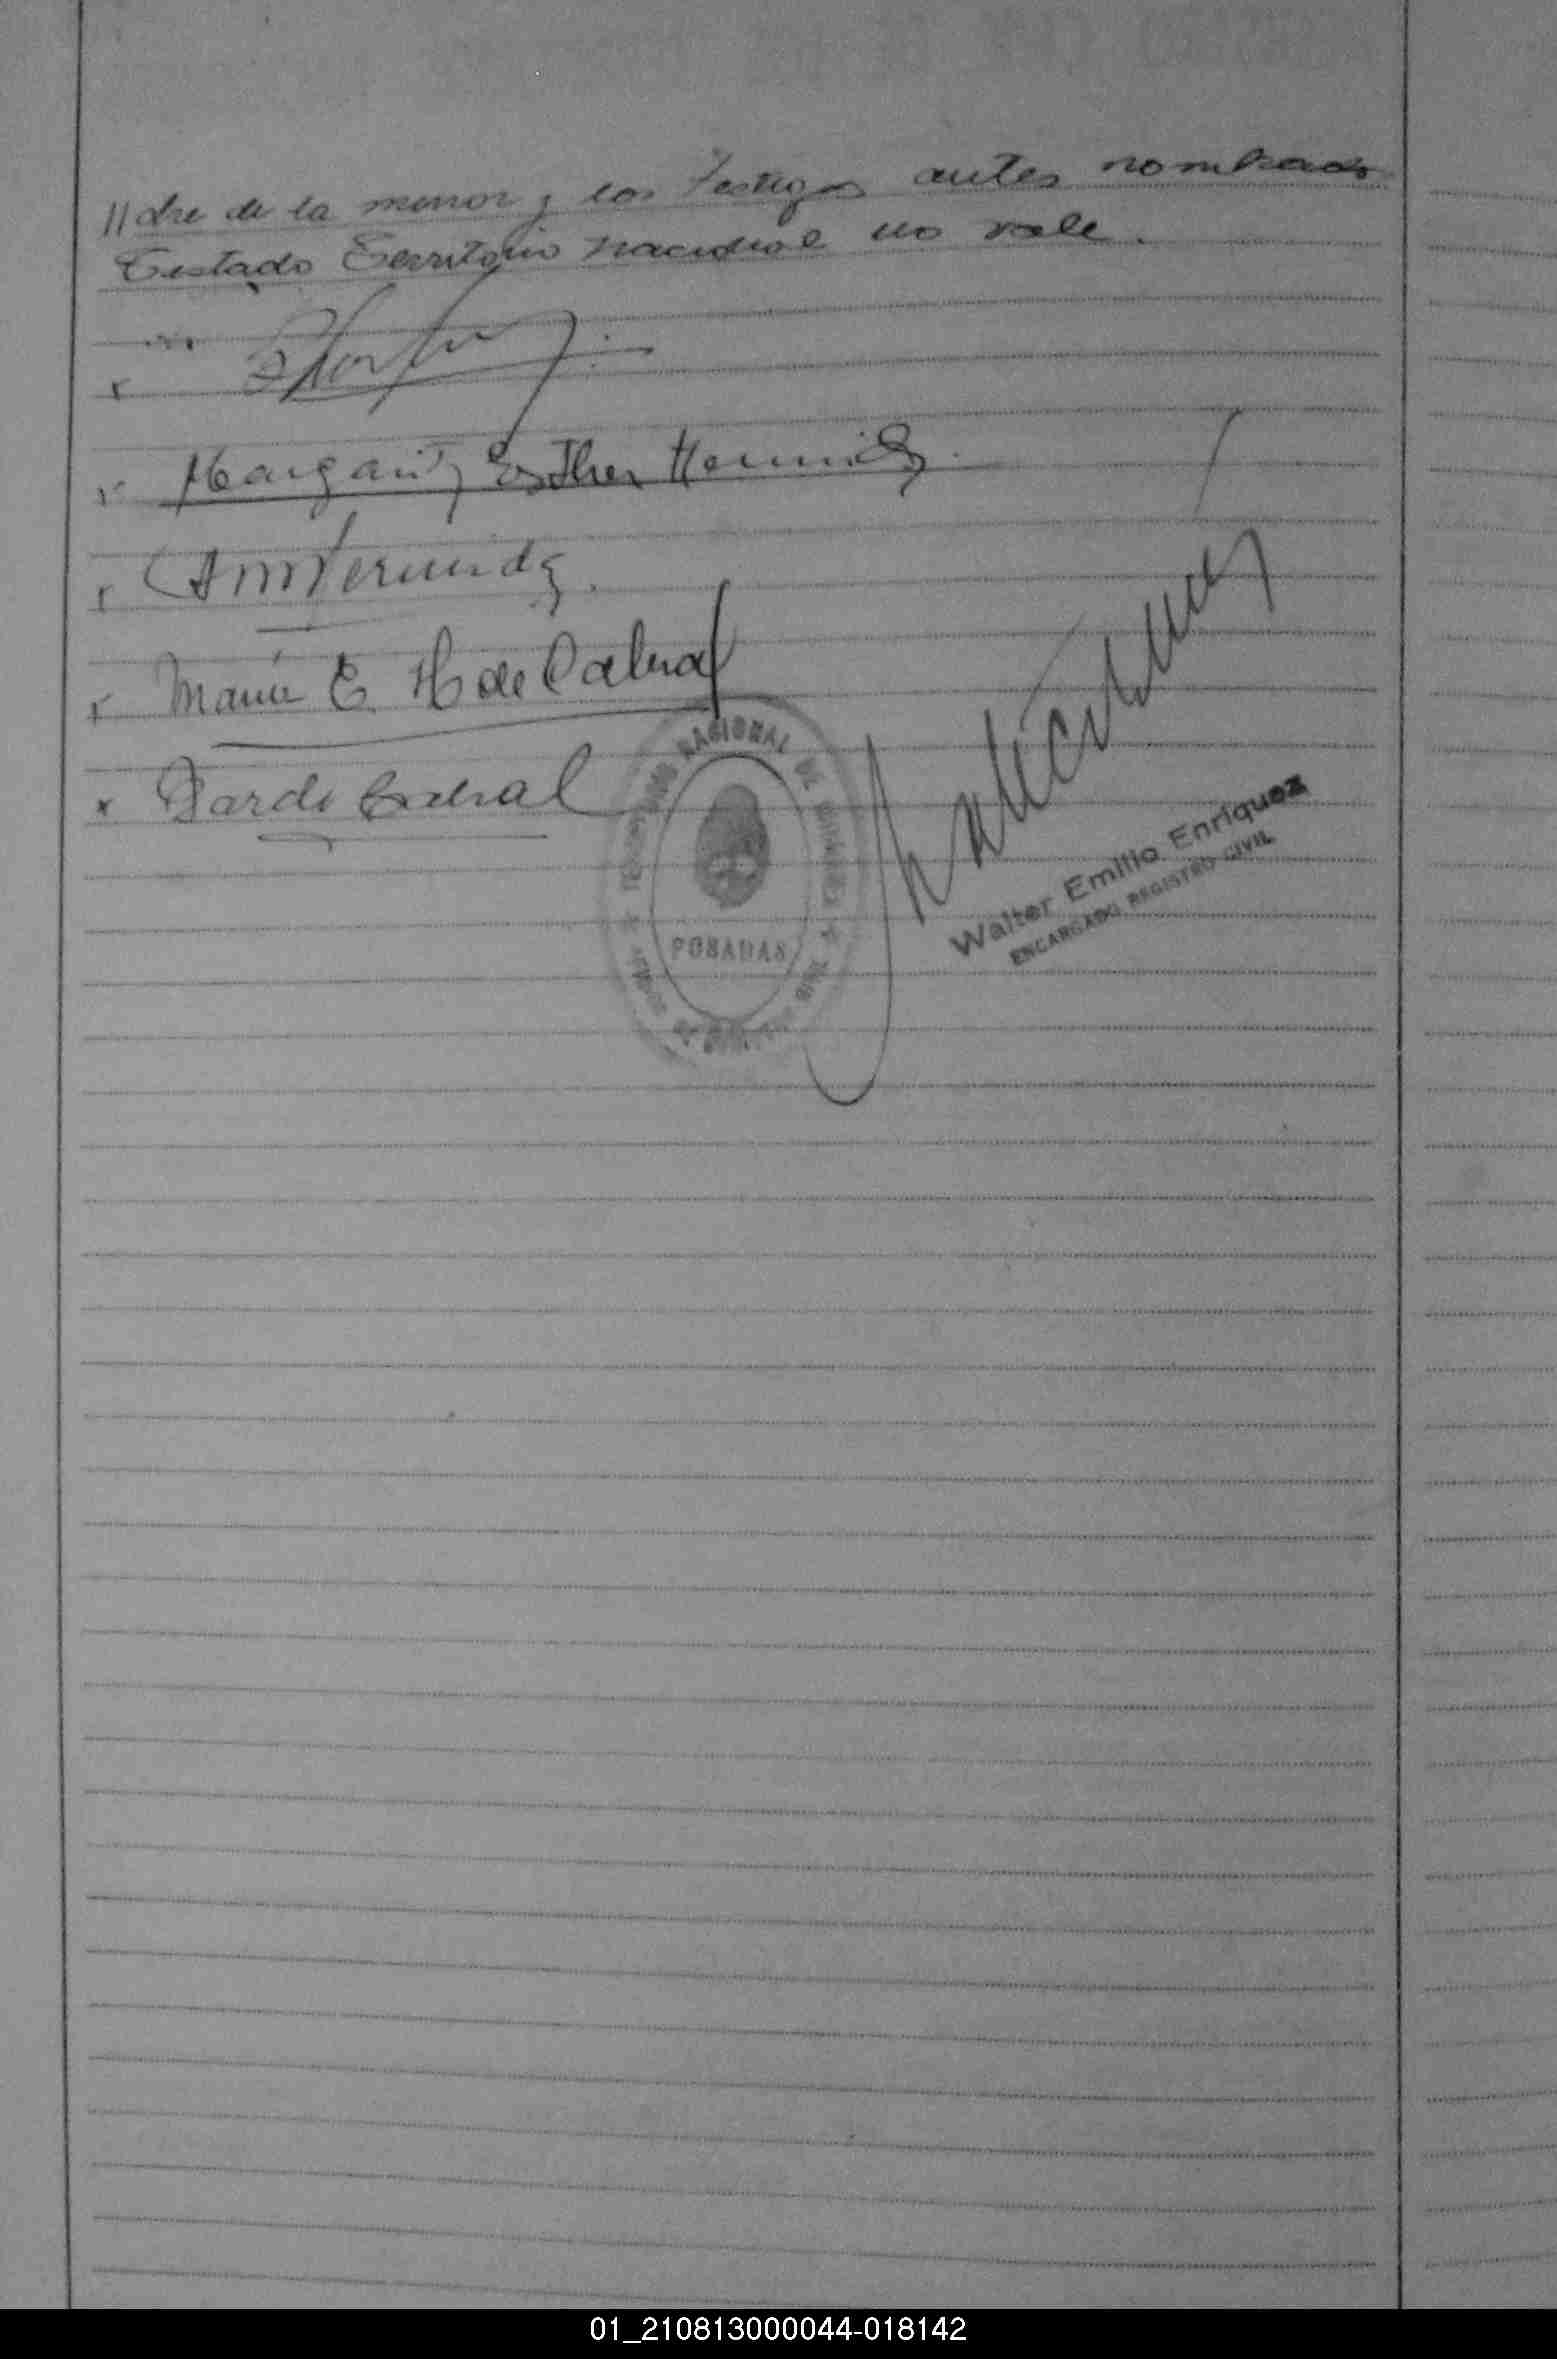 //dre de la menor y los testigos antes nombrados
Testado Territorio nacional no vale.
x
x Margarita Esther Hermida
x Hermida
x Maria E. H de Cabral
x Dardo Cabral
NACIONAL DE MISIONES
POSADAS
Walter Emilio Enriquez
ENCARGADO REGISTRO CIVIL
01_210813000044-018142